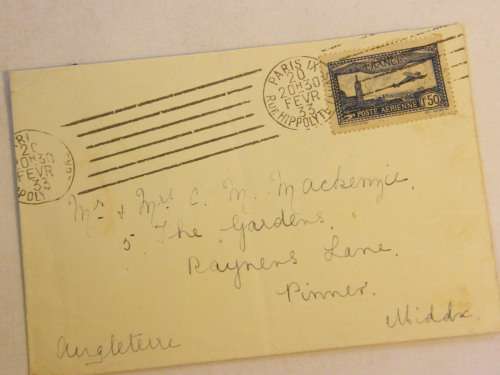 PARIS IX
20
20H30
FEVR
33
RUE HIPPOLYTE
FRANCE
POSTE AÉRIENNE
1F50
RI
20
0H30
FEVR
33
Mr & Mrs C. M. Mackenzie.
5. The Gardens.
Rayners Lane.
Pinner.
Middx.
Angleterre